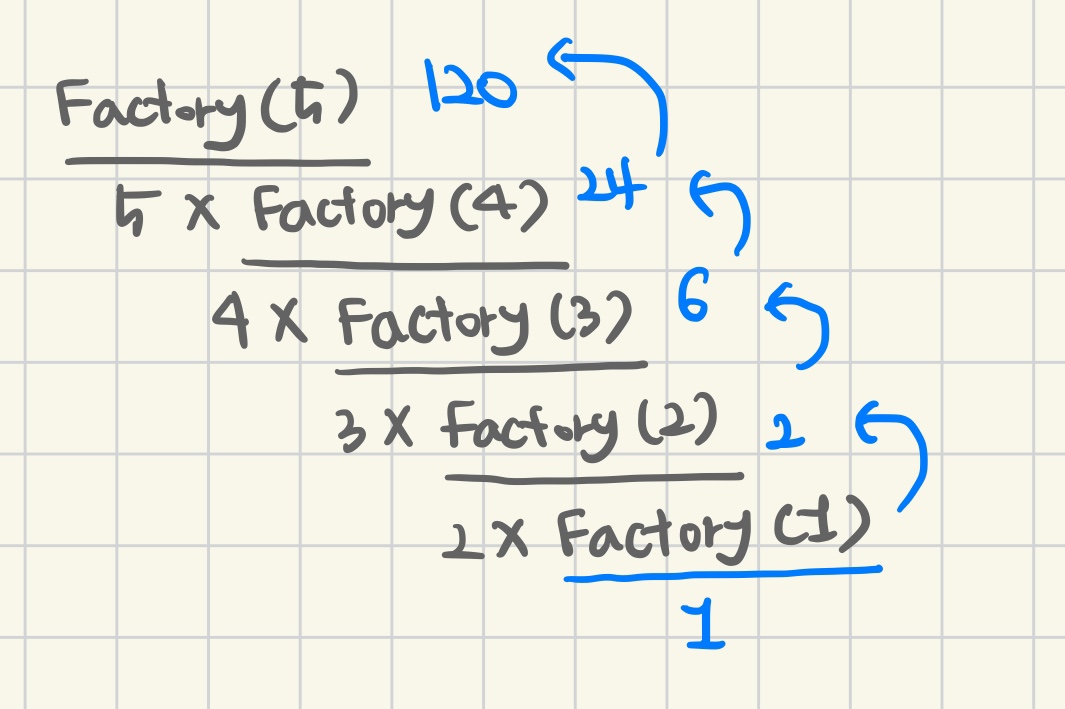 Factory(5) 120
5 × Factory(4) 24
4 × Factory(3) 6
3 × Factory(2) 2
2 × Factory(1)
1